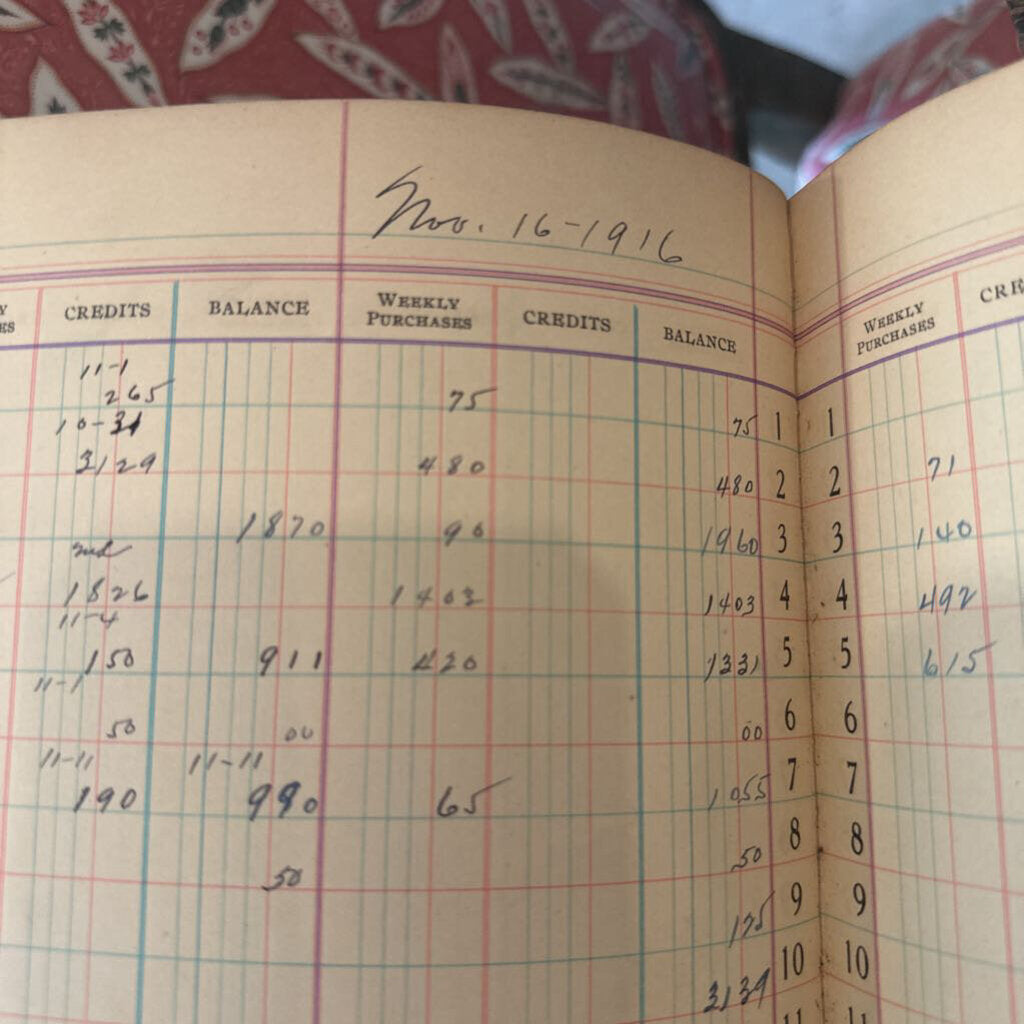 Nov. 16-1916
CREDITS BALANCE WEEKLY PURCHASES CREDITS BALANCE WEEKLY PURCHASES CRE
11-1
265 75 75 1 1
10-31
3129 480 480 2 2 71
1870 90 1960 3 3 140
1826 1403 1403 4 4 492
11-4
150 911 420 1331 5 5 615
11-1
50 00 00 6 6
11-11 11-11
190 990 65 1055 7 7
50 50 8 8
175 9 9
3139 10 10
11 11